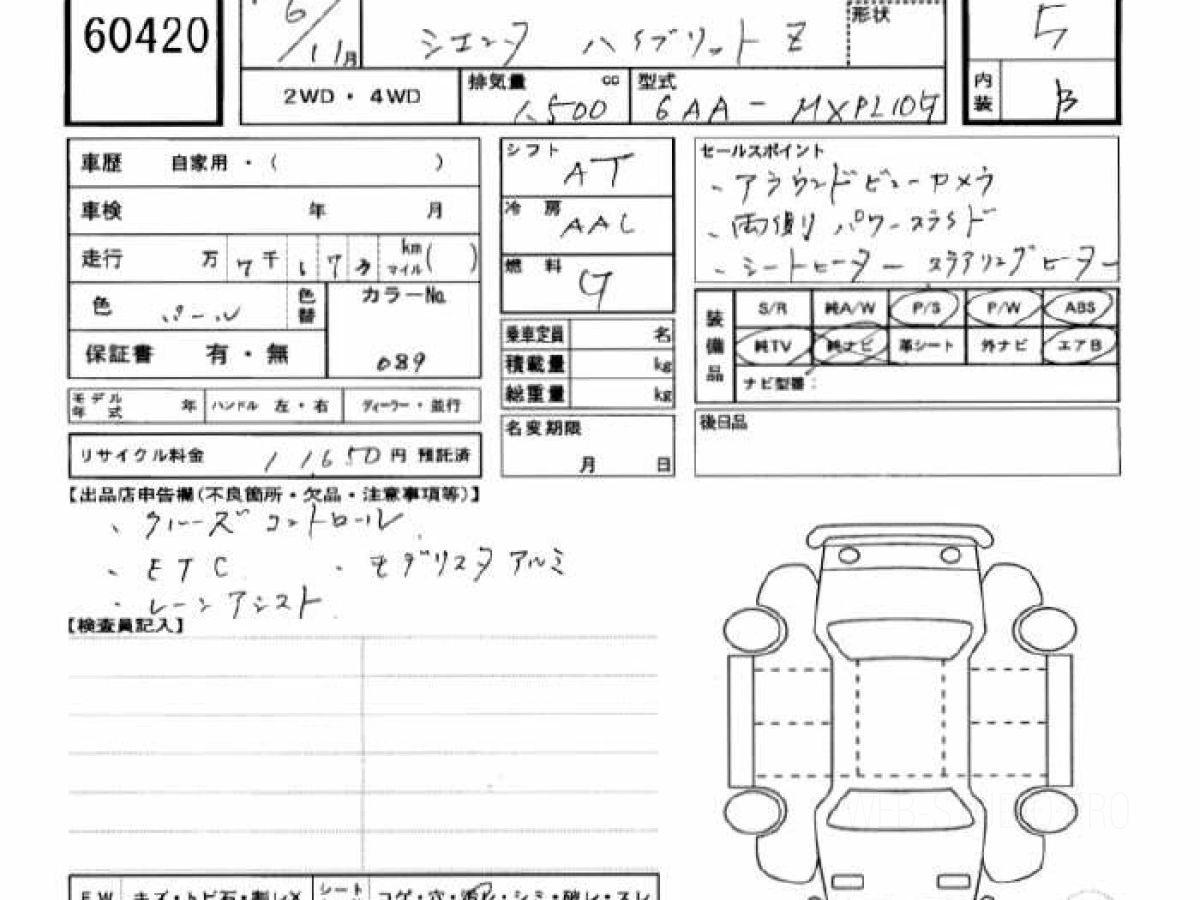 60420
6/11月
シエンタ ハイブリット Z
形状
5
2WD・4WD
排気量 cc
1,500
型式
6AA - MXPL10G
内装 B
車歴 自家用・( )
車検 年 月
走行 万 7千 1 7 3 km マイル ( )
色 パール
色替
カラーNo.
089
保証書 有・無
モデル年式 年 ハンドル 左・右 ディーラー・並行
リサイクル料金 11,650円 預託済
シフト AT
冷房 AAC
燃料 G
乗車定員 名
積載量 kg
総重量 kg
名変期限
月 日
セールスポイント
、アラウンドビューカメラ
、両側リパワースライド
、シートヒーター ステアリングヒーター
装備品
S/R 純A/W P/S P/W ABS
純TV 純ナビ 革シート 外ナビ エアB
ナビ型番:
後日品
【出品店申告欄(不良箇所・欠品・注意事項等)】
、クルーズコントロール
、ETC ・モデリスタアルミ
・レーンアシスト
【検査員記入】
FW キズ・トビ石・割レX
シート コゲ・穴・汚レ・シミ・破レ・スレ
WEB-S
RO